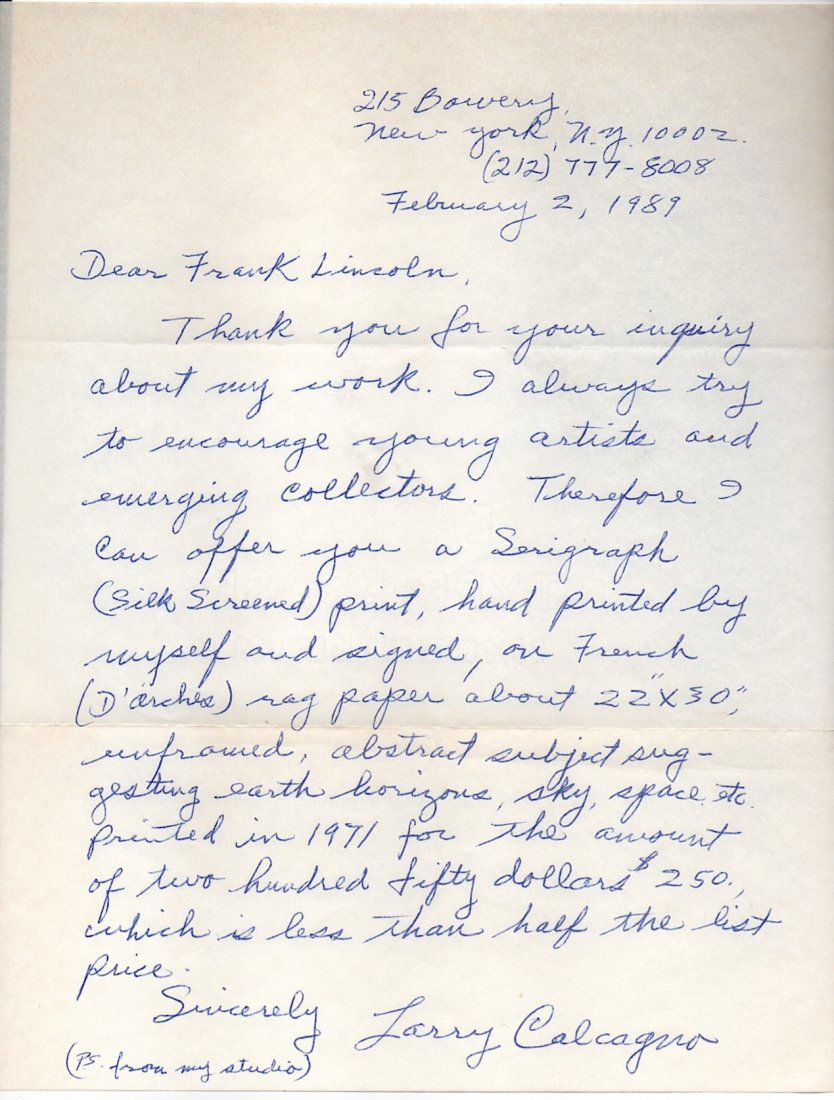 215 Bowery,
New York, N.Y. 10002.
(212) 777-8008
February 2, 1989
Dear Frank Lincoln,
Thank you for your inquiry
about my work. I always try
to encourage young artists and
emerging collectors. Therefore I
can offer you a Serigraph
(Silk Screened) print, hand printed by
myself and signed, on French
(D'arches) rag paper about 22"X30",
unframed, abstract subject sug-
gesting earth horizons, sky, space, etc.
printed in 1971 for the amount
of two hundred fifty dollars $250.,
which is less than half the list
price.
Sincerely Larry Calcagno
(PS. from my studio)